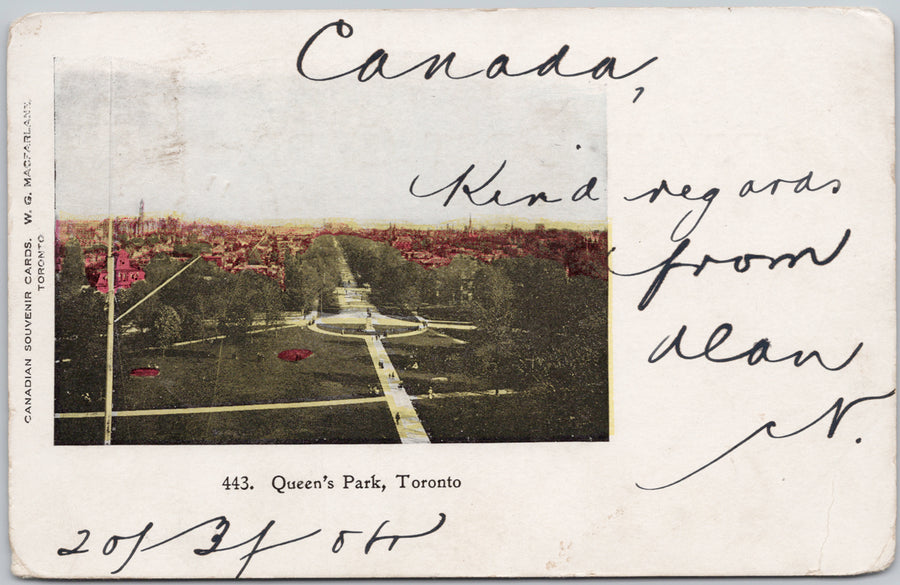 Canada,
Kind regards
from
dean
N.
CANADIAN SOUVENIR CARDS. W. G. MACFARLANE,
TORONTO
443. Queen's Park, Toronto
20/3/04